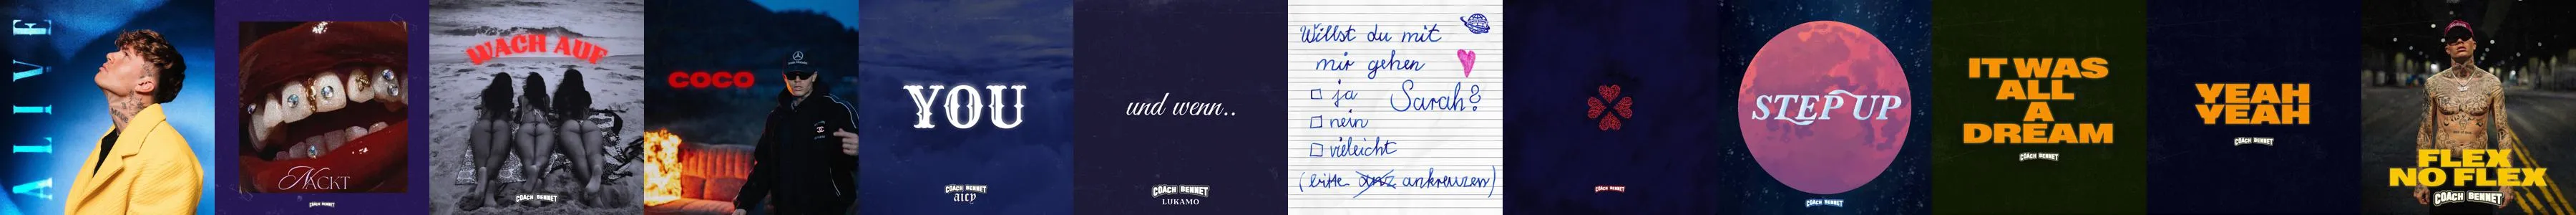 ALIVE
NACKT
COACH BENNET
WACH AUF
COACH BENNET
COCO
YOU
COACH BENNET
AICY
und wenn..
COACH BENNET
LUKAMO
Willst du mit
mir gehen
Sarah?
ja
nein
vieleicht
(bitte ankreuzen)
COACH BENNET
STEP UP
COACH BENNET
IT WAS
ALL
A
DREAM
COACH BENNET
YEAH
YEAH
COACH BENNET
FLEX
NO FLEX
COACH BENNET